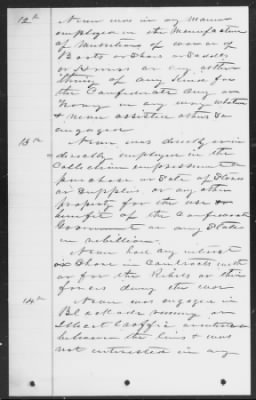 12th Never was in any manner
employed in the Manufacture
of Munitions of war or of
Boots or Shoes or Saddles
or Harness or any other
thing of any kind for
the Confederate Army or
Navy in any way whatever
& never assisted others so
engaged
13th Never was directly or in
directly employed in the
Collection impressment or
purchase or Sale of Stores
or Supplies or any other
property for the use or
benefit of the Confederate
Government or any States
in rebellion.
Never had any interest
or Share in Contracts with
or for the Rebels or their
forces during the war
14th Never was engaged in
Blockade running or
Illicit Traffic
between the lines & was
not interested in any